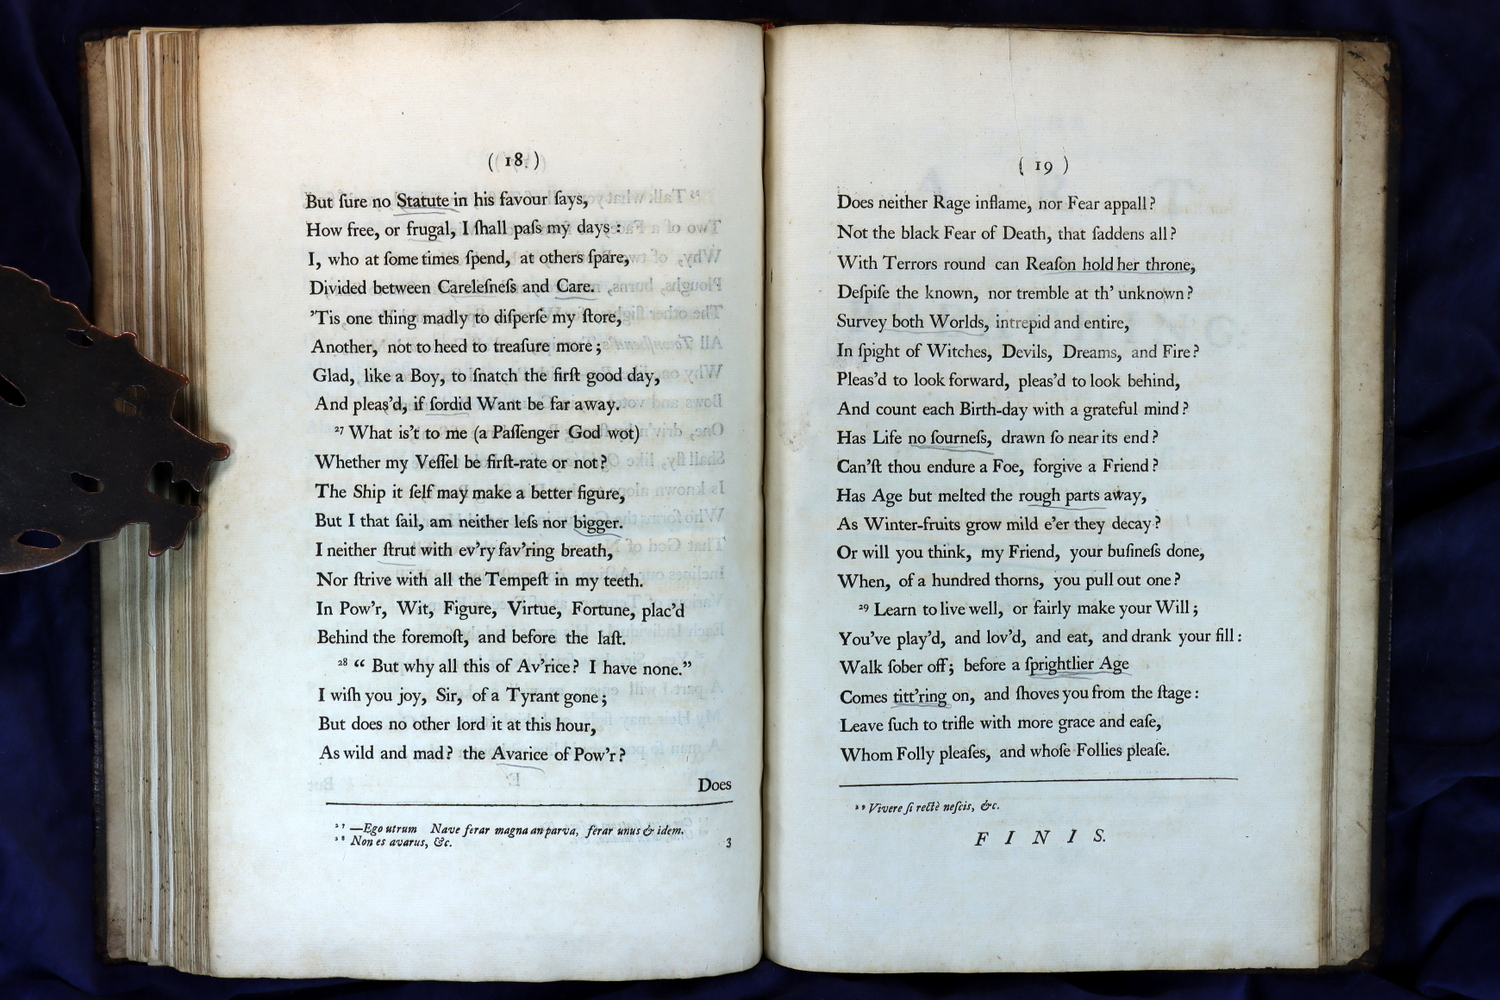 ( 18. )
But ſure no Statute in his favour ſays,
How free, or frugal, I ſhall paſs my days :
I, who at ſometimes ſpend, at others ſpare,
Divided between Careleſneſs and Care.
'Tis one thing madly to diſperſe my ſtore,
Another, not to heed to treaſure more ;
Glad, like a Boy, to ſnatch the firſt good day,
And pleas'd, if ſordid Want be far away.
27 What is't to me (a Paſſenger God wot)
Whether my Veſſel be firſt-rate or not?
The Ship it ſelf may make a better figure,
But I that ſail, am neither leſs nor bigger.
I neither ſtrut with ev'ry fav'ring breath,
Nor ſtrive with all the Tempeſt in my teeth.
In Pow'r, Wit, Figure, Virtue, Fortune, plac'd
Behind the foremoſt, and before the laſt.
28 “ But why all this of Av'rice? I have none.”
I wiſh you joy, Sir, of a Tyrant gone ;
But does no other lord it at this hour,
As wild and mad? the Avarice of Pow'r?
Does
27 —Ego utrum Nave ferar magna an parva, ferar unus & idem.
28 Non es avarus, &c.
3
( 19 )
Does neither Rage inflame, nor Fear appall?
Not the black Fear of Death, that ſaddens all?
With Terrors round can Reaſon hold her throne,
Deſpiſe the known, nor tremble at th' unknown?
Survey both Worlds, intrepid and entire,
In ſpight of Witches, Devils, Dreams, and Fire?
Pleas'd to look forward, pleas'd to look behind,
And count each Birth-day with a grateful mind?
Has Life no ſourneſs, drawn ſo near its end?
Can'ſt thou endure a Foe, forgive a Friend?
Has Age but melted the rough parts away,
As Winter-fruits grow mild e'er they decay?
Or will you think, my Friend, your buſineſs done,
When, of a hundred thorns, you pull out one?
29 Learn to live well, or fairly make your Will ;
You've play'd, and lov'd, and eat, and drank your fill :
Walk ſober off ; before a ſprightlier Age
Comes titt'ring on, and ſhoves you from the ſtage :
Leave ſuch to trifle with more grace and eaſe,
Whom Folly pleaſes, and whoſe Follies pleaſe.
29 Vivere ſi rectè neſcis, &c.
F I N I S.